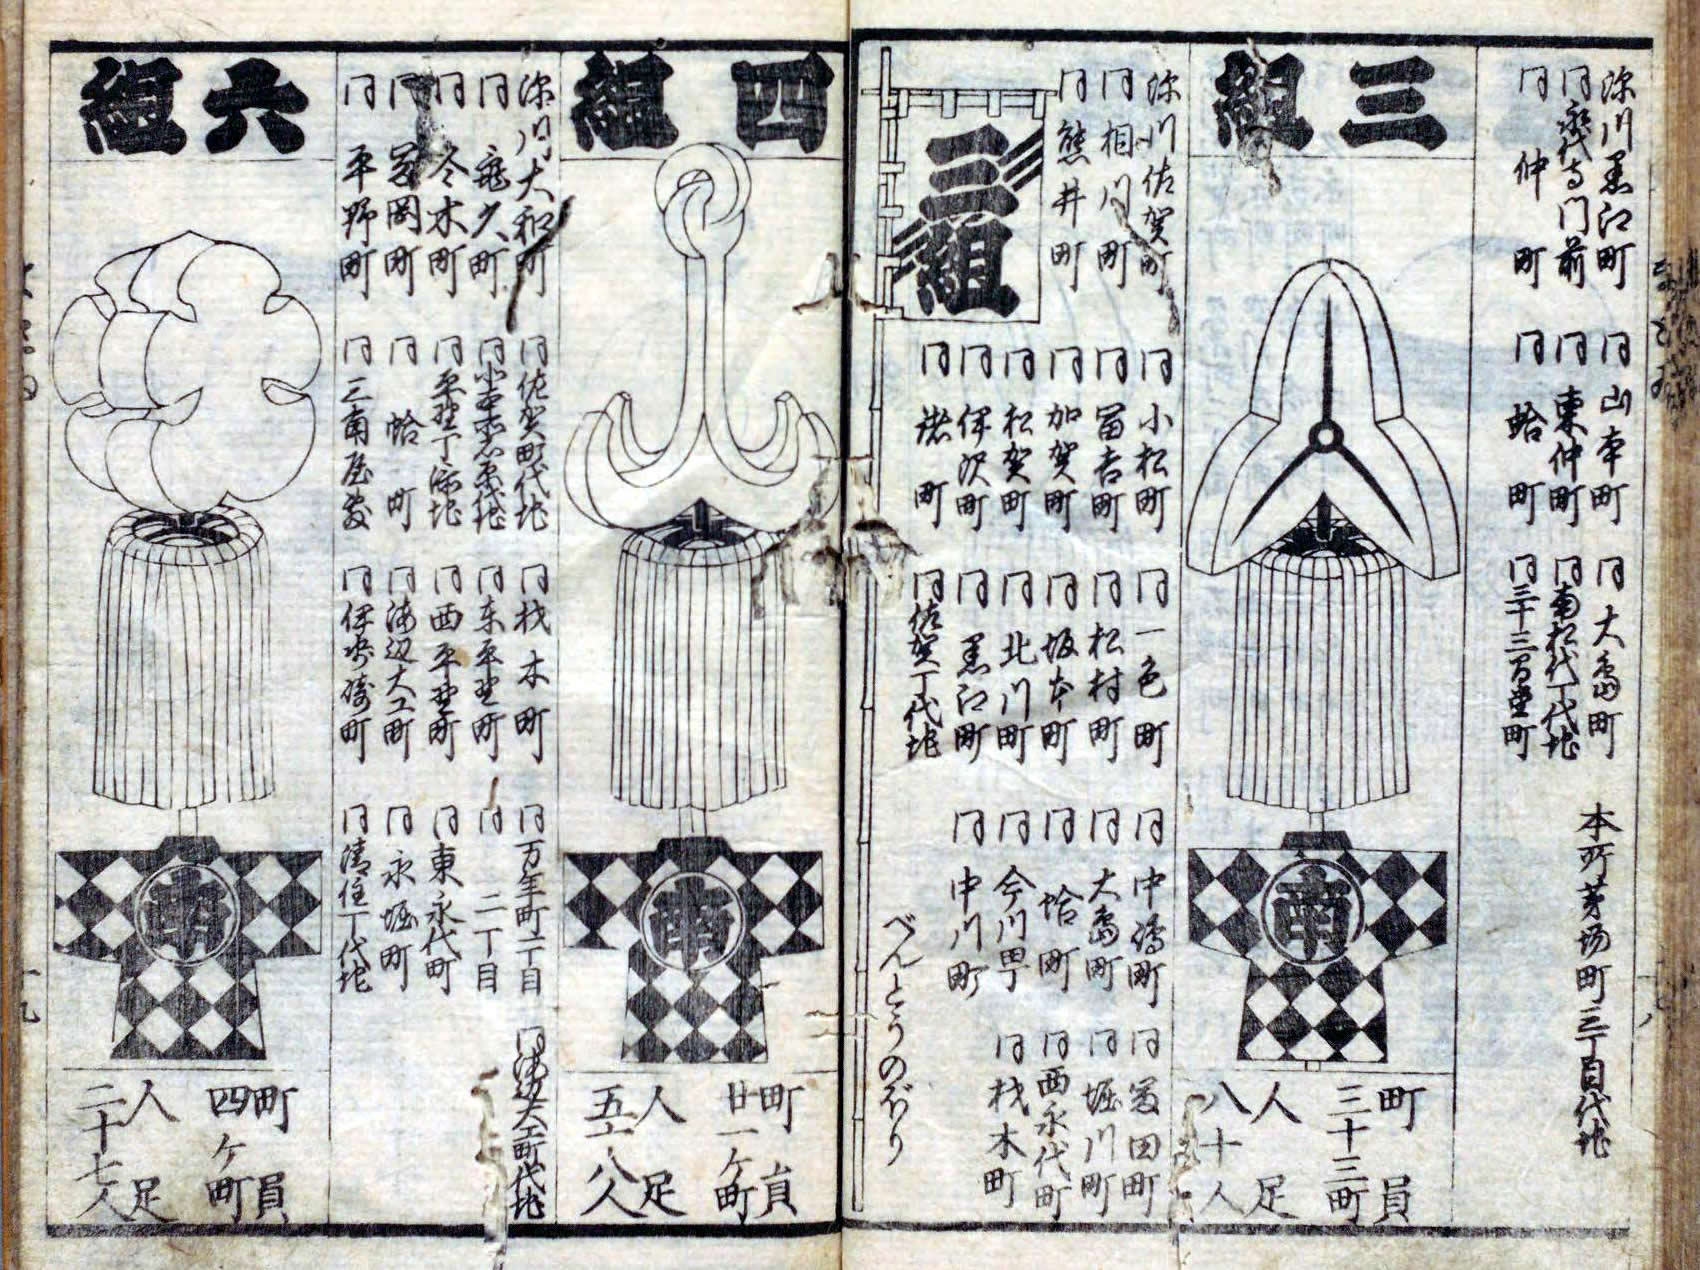 深川黒江町
同永代寺門前
同仲町
同山本町
同東仲町
同蛤町
同大島町
同南松代丁代地
同三十三間堂町
本所茅場町三丁目代地
三組
南
町員
三十三町
人足
八十人
深川佐賀町
同相川町
同熊井町
同小松町
同冨吉町
同加賀町
同松賀町
同伊沢町
同諸町
同一色町
同松村町
同坂本町
同北川町
同黒江町
同佐賀丁代地
同中嶋町
同大島町
同蛤町
同今川町
同中川町
同冨田町
同堀川町
同西永代町
同材木町
三組
べんとうのぼり
四組
南
町員
廿一ケ町
人足
五十八人
深川大和町
同亀久町
同今木町
同冨岡町
同平野町
同佐賀町代地
同平野丁続地
同蛤町
同材木町
同东平野町
同西平野町
同海辺大工町
同伊勢崎町
同万年町一丁目
同二丁目
同東永代町
同永堀町
同清住丁代地
同海辺大工町代地
六組
南
町員
四ケ町
人足
二十七人